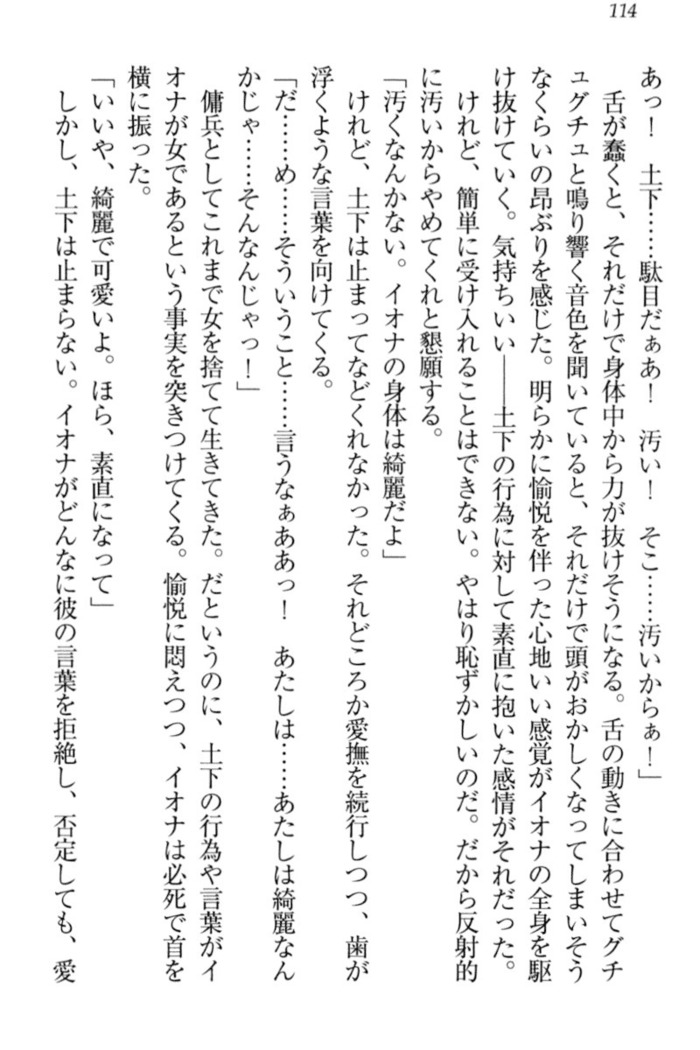 114
あっ！　土下……駄目だぁあ！　汚い！　そこ……汚いからぁ！」
　舌が蠢くと、それだけで身体中から力が抜けそうになる。舌の動きに合わせてグチ
ュグチュと鳴り響く音色を聞いていると、それだけで頭がおかしくなってしまいそう
なくらいの昂ぶりを感じた。明らかに愉悦を伴った心地いい感覚がイオナの全身を駆
け抜けていく。気持ちいい――土下の行為に対して素直に抱いた感情がそれだった。
　けれど、簡単に受け入れることはできない。やはり恥ずかしいのだ。だから反射的
に汚いからやめてくれと懇願する。
「汚くなんかない。イオナの身体は綺麗だよ」
　けれど、土下は止まってなどくれなかった。それどころか愛撫を続行しつつ、歯が
浮くような言葉を向けてくる。
「だ……め……そういうこと……言うなぁああっ！　あたしは……あたしは綺麗なん
かじゃ……そんなんじゃっ！」
　傭兵としてこれまで女を捨てて生きてきた。だというのに、土下の行為や言葉がイ
オナが女であるという事実を突きつけてくる。愉悦に悶えつつ、イオナは必死で首を
横に振った。
「いいや、綺麗で可愛いよ。ほら、素直になって」
　しかし、土下は止まらない。イオナがどんなに彼の言葉を拒絶し、否定しても、愛